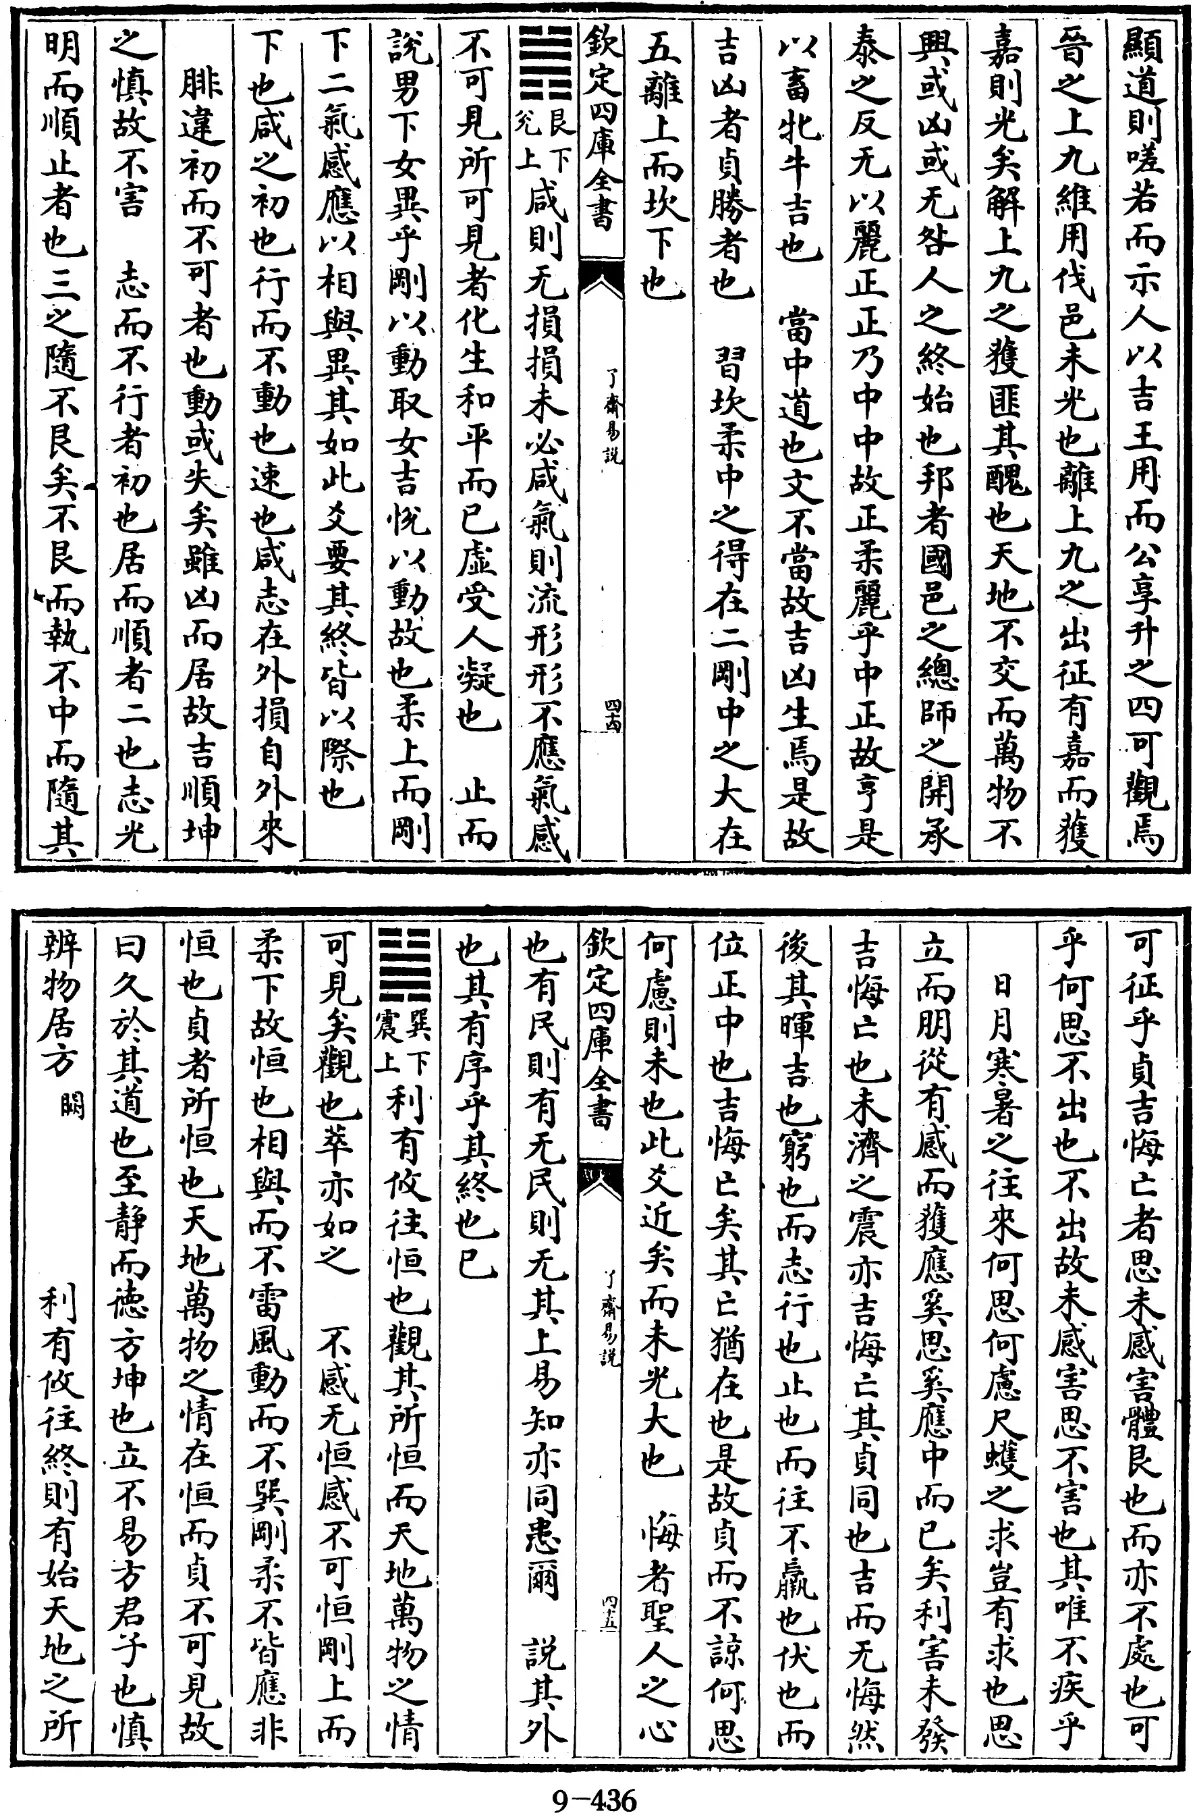 顯道則嗟若而示人以吉王用而公享升之四可觀焉
晉之上九維用伐邑未光也離上九之出征有嘉而獲
嘉則光矣解上九之獲匪其醜也天地不交而萬物不
興或凶或无咎人之終始也邦者國邑之總師之開承
泰之反无以麗正正乃中中故正柔麗乎中正故亨是
以畜牝牛吉也　當中道也文不當故吉凶生焉是故
吉凶者貞勝者也　習坎柔中之得在二剛中之大在
五離上而坎下也
欽定四庫全書　了齋易說　四十四
䷞艮下兊上咸則无損損未必咸氣則流形形不應氣感
不可見所可見者化生和平而已虛受人凝也　止而
說男下女異乎剛以動取女吉悅以動故也柔上而剛
下二氣感應以相與異其如此爻要其終皆以際也
下也咸之初也行而不動也速也咸志在外損自外來
腓違初而不可者也動或失矣雖凶而居故吉順坤
之慎故不害　志而不行者初也居而順者二也志光
明而順止者也三之隨不艮矣不艮而執不中而隨其
可征乎貞吉悔亡者思未感害體艮也而亦不處也可
乎何思不出也不出故未感害思不害也其唯不疾乎
日月寒暑之往來何思何慮尺蠖之求豈有求也思
立而朋從有感而獲應奚思奚應中而已矣利害未發
吉悔亡也未濟之震亦吉悔亡其貞同也吉而无悔然
後其暉吉也窮也而志行也止也而往不羸也伏也而
位正中也吉悔亡矣其亡猶在也是故貞而不諒何思
何慮則未也此爻近矣而未光大也　悔者聖人之心
欽定四庫全書　了齋易說　四十五
也有民則有无民則无其上易知亦同患爾　說其外
也其有序乎其終也已
䷟巽下震上利有攸往恒也觀其所恒而天地萬物之情
可見矣觀也萃亦如之　不感无恒感不可恒剛上而
柔下故恒也相與而不雷風動而不巽剛柔不皆應非
恒也貞者所恒也天地萬物之情在恒而貞不可見故
曰久於其道也至静而徳方坤也立不易方君子也慎
辨物居方　闕　利有攸往終則有始天地之所
9-436